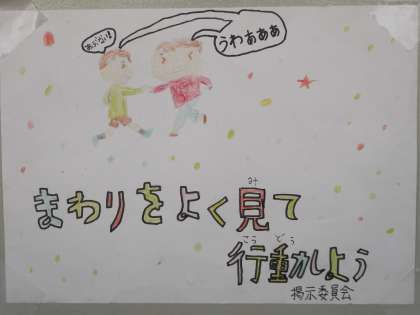 あぶない!!
うわぁぁぁ
まわりをよく見て
み
行動しよう
こう どう
掲示委員会